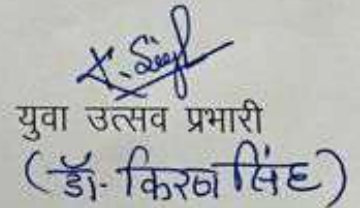 K. Singh
युवा उत्सव प्रभारी
(डॉ- किरण सिंह)